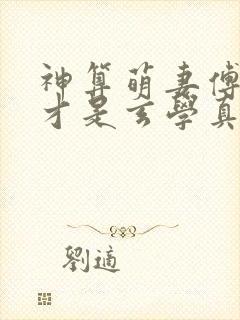 神算萌妻傅
才是玄學真
劉適